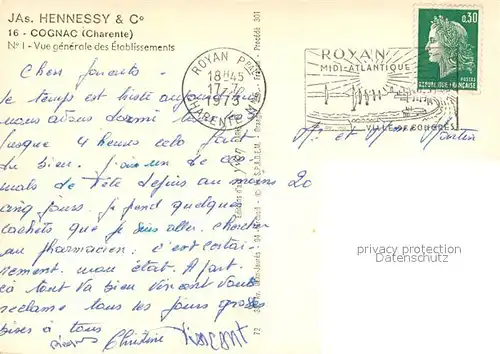 JAs. HENNESSY & Co
16 - COGNAC (Charente)
No I - Vue générale des Établissements
Chers parents
le temps est triste aujourd'hui
nous avons dormi
jusque 4 heures cela fait
du bien. J'ai un de ces
mals de tête depuis au moins
cinq jours. Je prend quelques
cachets que je suis aller chercher
au pharmacien; c'est certai-
nement mon état. A part
çà tout va bien Vincent vous
réclame tous les jours grosses
bises à tous
Christine Vincent
ROYAN Ppal
18H45
17-7
1973
CHARENTE-Mme
ROYAN
MIDI-ATLANTIQUE
VILLE DE CONGRÈS
0,30
POSTES
REPUBLIQUE FRANÇAISE
M. et Mme Martin
20
Procédé 301
72
privacy protection
Datenschutz